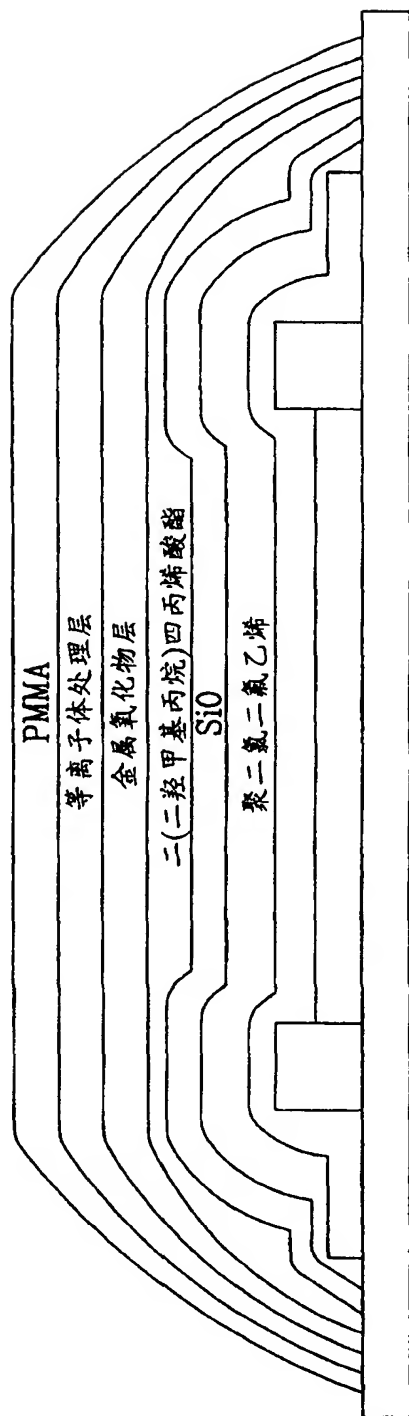 PMMA
等离子体处理层
金属氧化物层
二(二羟甲基丙烷)四丙烯酸酯
SiO
聚二氯二氟乙烯